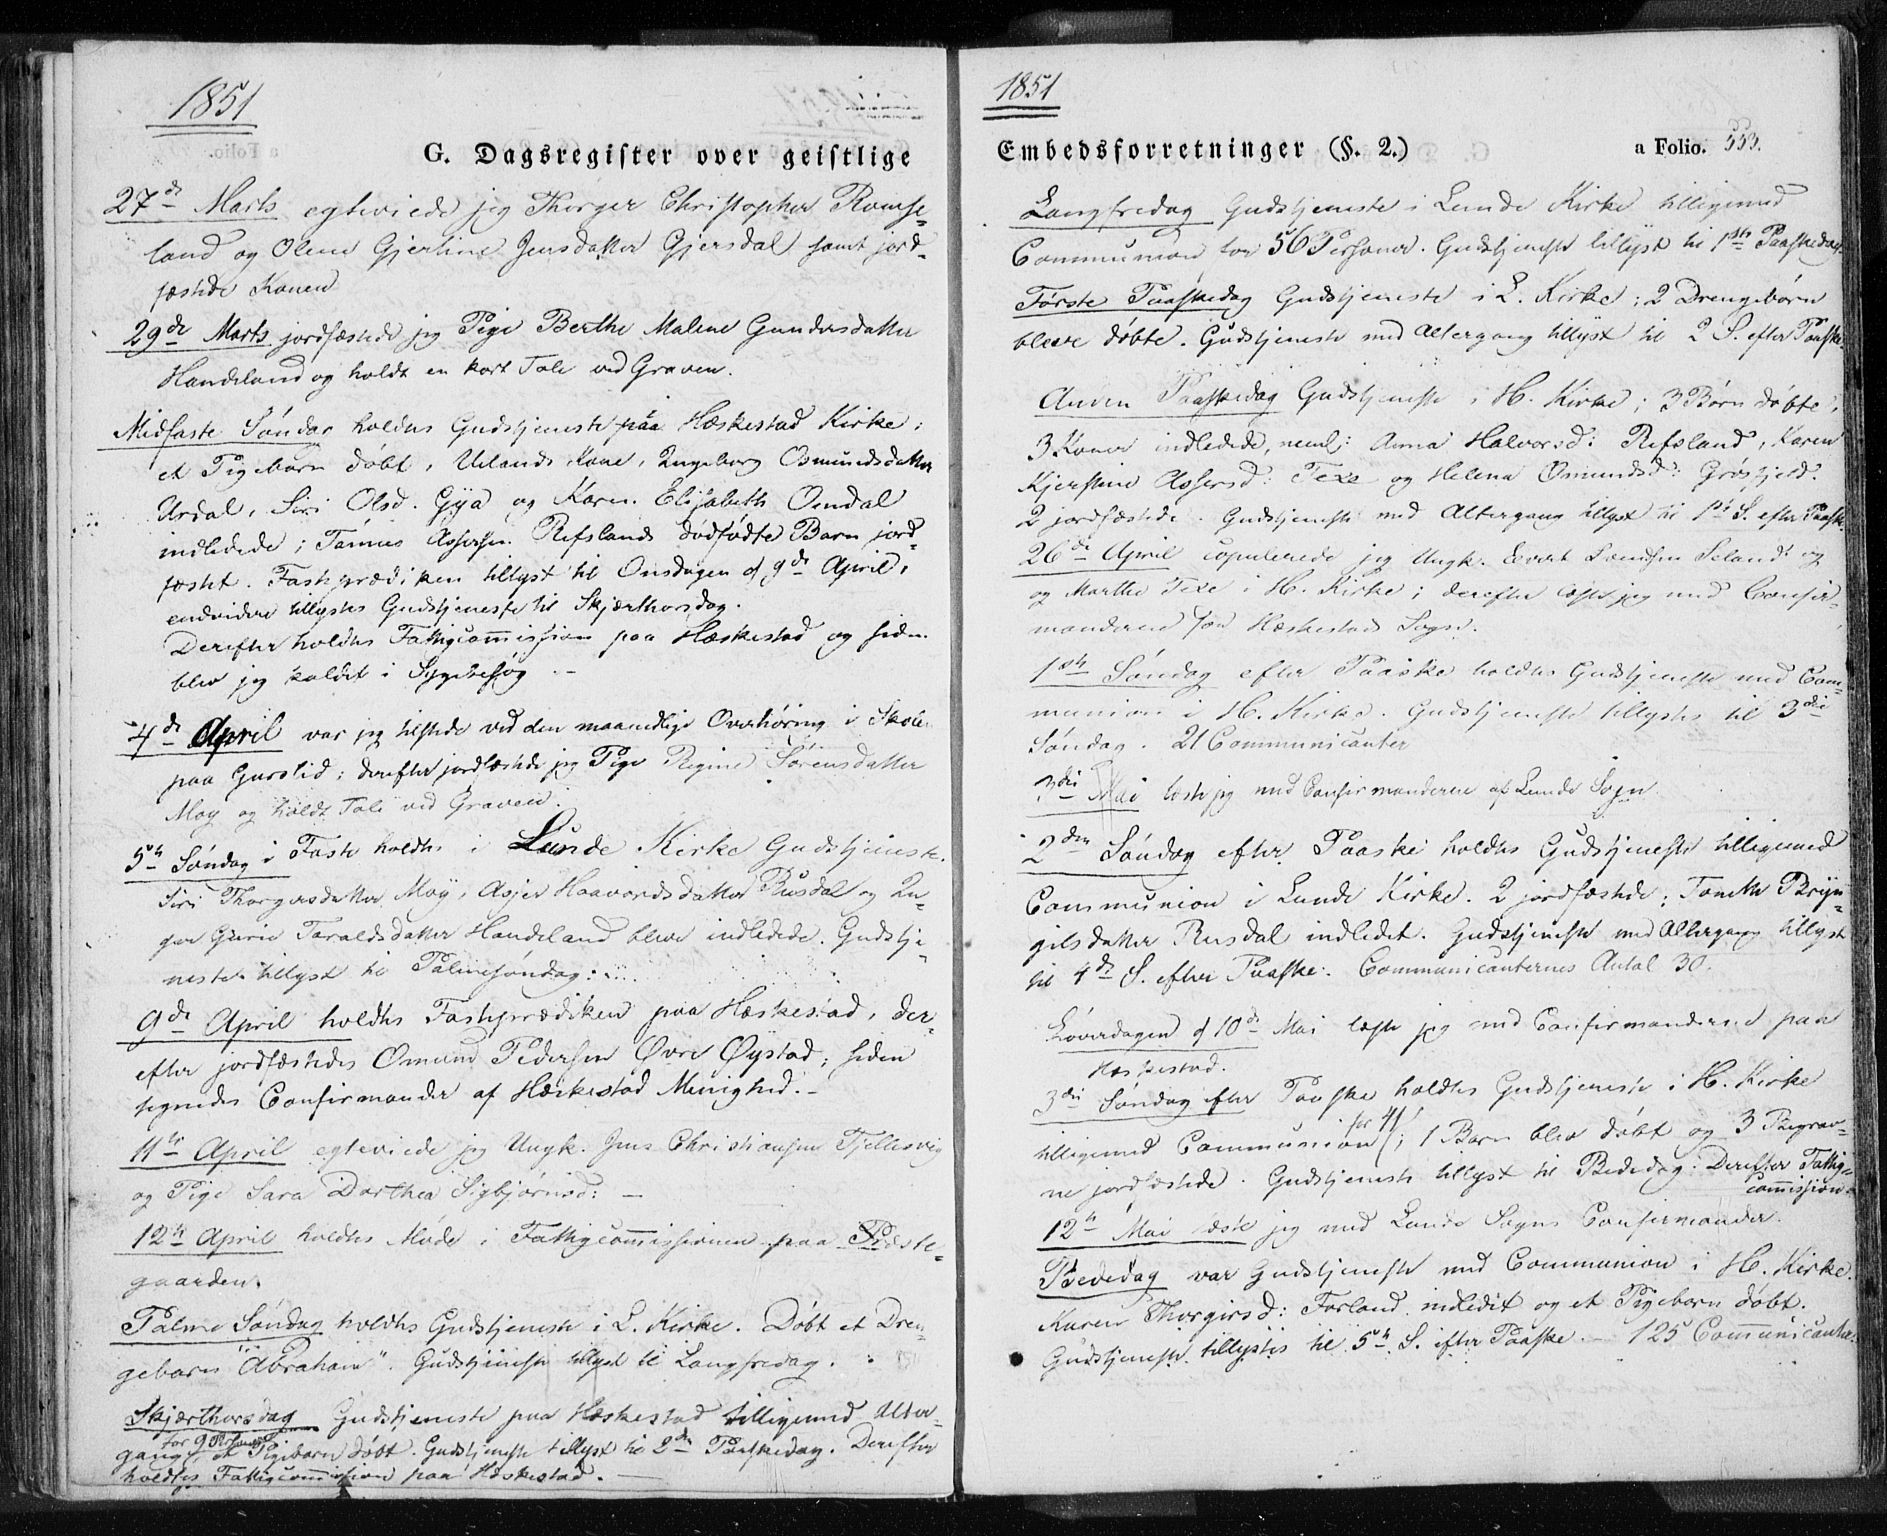 1851
G. Dagsregister over geistlige
27de Marts egteviede jeg Thorger Christopher Romse-
land og Olene Gjertine Jensdatter Gjersdal samt jord-
fæstede Konen
29de Marts jordfæstede jeg Pige Berthe Malene Gundersdatter
Handeland og holdt en kort Tale ved Graven.
Midfaste Søndag holdtes Gudstjeneste paa Hæskestad Kirke;
et Pigebarn døbt, Uelands Kone, Ingeborg Osmundsdatter
Urdal, Siri Olsd. Gya og Karen Elisabeth Omdal
indledede; Tønnes Assersen Refslands dødfødte Barn jord-
fæstet. Fasteprædiken tillyst til Onsdagen d 9de April,
endvidere tillystes Gudstjeneste til Skjærthorsdag.
Derefter holdtes Fattigcommission paa Hæskestad og siden
blev jeg kaldet i Sygebesøg.-
4de April var jeg tilstede ved den maanedlige Overhøring i Skolen
paa Gurslid; derefter jordfæstede jeg Pige Regine Sørensdatter
Moy og holdt Tale ved Graven.
5te Søndag i Faste holdtes i Lunde Kirke Gudstjeneste.
Siri Thorgersdatter Moy, Asjer Haavordsdatter Rusdal og In-
ger Gurie Taraldsdatter Handeland bleve indledede. Gudstje-
neste tillyst til Palmesøndag:
9de April holdtes Fasteprædiken paa Hæskestad, der-
efter jordfæstedes Osmund Pedersen Øvre Øystad; siden
tegnedes Confirmander af Hæskestad Menighed.-
11te April egteviede jeg Ungk. Jens Christiansen Fjellesvig
og Pige Sara Dorthea Sigbjørnsd: -
12te April holdtes Møde i Fattigcommissionen paa Præste-
gaarden.
Palme Søndag holdtes Gudstjeneste i L. Kirke. Døbt et Dren-
gebarn "Abraham". Gudstjeneste tillyst til Langfredag.
Skjærthorsdag Gudstjeneste paa Hæskestad tilligemed Alter-
for 9 Personer
gang; et Pigebarn døbt. Gudstjeneste tillyst til 2den Paaskedag. Derefter
holdtes Fattigcommission paa Hæskestad. -
1851
Embedsforretninger (§. 2.)
a Folio. 553.
Langfredag Gudstjeneste i Lunde Kirke tilligemed
Communion for 56 Personer. Gudstjeneste tillyst til 1ste Paaskedag.
Første Paaskedag Gudstjeneste i L. Kirke; 2 Drengebørn
bleve døbte. Gudstjeneste med Altergang tillyst til 2 S. efter Paaske.
Anden Paaskedag Gudstjeneste i H. Kirke; 3 Børn døbte,
3 Koner indledede, neml: Anna Halvorsd: Refsland, Karen
Kjerstine Assersd: Texe og Helena Osmundsd: Grøsfjeld.
2 jordfæstede. Gudstjeneste med Altergang tillyst til 1ste S. efter Paaske.
26de April copulerede jeg Ungk. Severt Svendsen Seland og
og Marthe Texe i H. Kirke; derefter læste jeg med Confir-
manderne for Hæskestad Sogn.
1ste Søndag efter Paaske holdtes Gudstjeneste med Com-
munion i H. Kirke. Gudstjeneste tillystes til 3die
Søndag. 21 Communicanter
3die Mai læste jeg med Confirmanderne af Lunde Sogn.
2den Søndag efter Paaske holdtes Gudstjeneste tilligemed
Communion i Lunde Kirke. 2 jordfæstede; Tonette Bryn-
gilsdatter Rusdal indledet. Gudstjeneste med Altergang tillyst
til 4de S. efter Paaske. Communicanternes Antal 30.
Løverdagen d 10de Mai læste jeg med Confirmanderne paa
Hæskestad.
3die Søndag efter Paaske holdtes Gudstjeneste i H. Kirke
for 41
tilligemed Communion; 1 Barn blev døbt og 3 Begrav-
ne jordfæstede. Gudstjeneste tillyst til Bededag. Derefter Fattig-
commission.
12te Mai læste jeg med Lunde Sogns Confirmander.
Bededag var Gudstjeneste med Communion i H. Kirke.
Karen Thorgirsd: Forland indledet og et Pigebarn døbt.
Gudstjeneste tillystes til 5te S. efter Paaske. - 125 Communicanter.